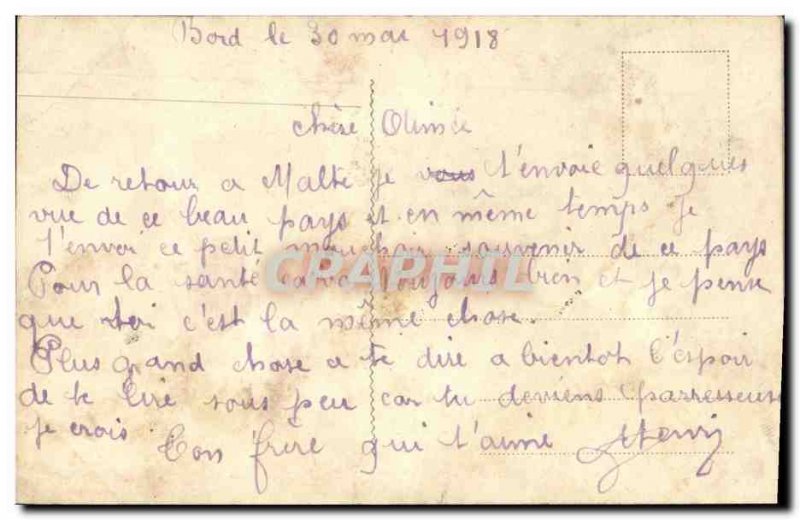 Bord le 30 mai 1918
chère Olimée
De retour a Malte je vous t'envoie quelques
vue de ce beau pays et en même temps je
t'envoi ce petit mouchoir souvenir de ce pays
Pour la santé sa va toujours bien et je pense
que toi c'est la même chose.
Plus grand chose a te dire a bientot l'espoir
de te lire sous peu car tu deviens parresseuse
je crois. Ton frère qui t'aime Henri
CPAPHIL